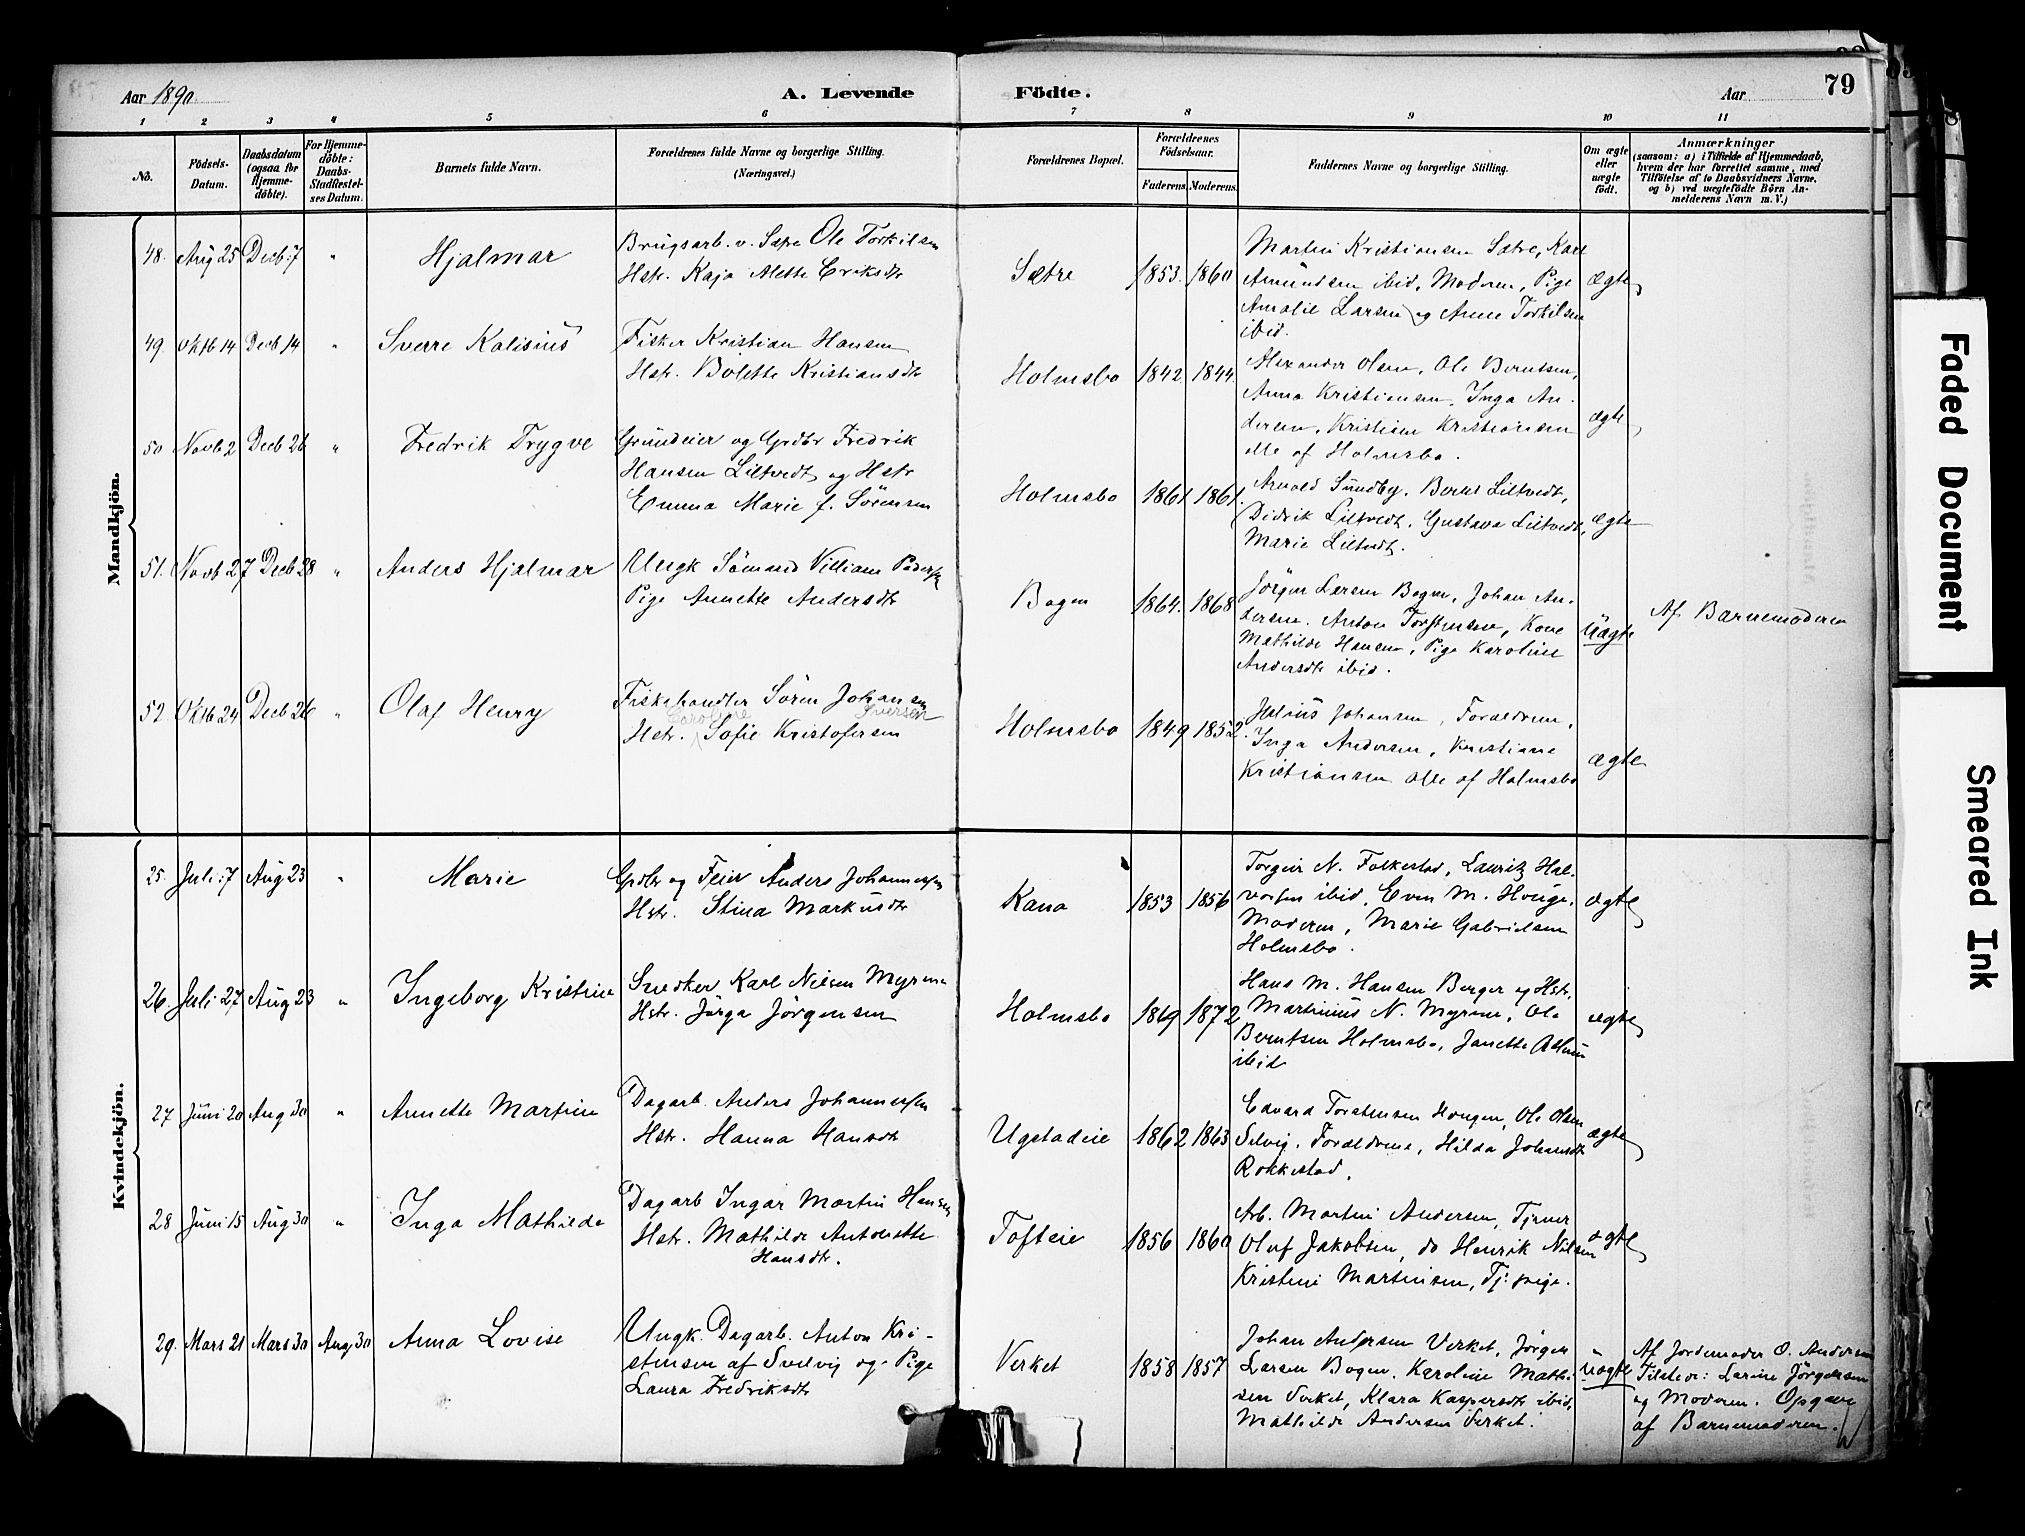 Aar 1890
A. Levende
Födte.
Aar
79
1 2 3 4 5 6 7 8 9 10 11
No.
Födsels-
Datum.
Daabsdatum
(ogsaa for
Hjemme-
döbte).
For Hjemme-
döbte:
Daabs-
Stadfæstel-
ses Datum.
Barnets fulde Navn.
Forældrenes fulde Navne og borgerlige Stilling.
(Næringsvei.)
Forældrenes Bopæl.
Forældrenes
Födselsaar.
Faderens. Moderens.
Faddernes Navne og borgerlige Stilling.
Om ægte
eller
uægte
födt.
Anmærkninger
(saasom: a) i Tilfælde af Hjemmedaab,
hvem der har forrettet samme, med
Tilföielse af to Daabsvidners Navne,
og b) ved uægtefödte Börn An-
melderens Navn m. V.)
Mandkjön.
48. Aug 25 Decb 7 " Hjalmar
Brugsarb. v. Sætre Ole Torkilsen
Hstr. Kaja Alette Eriksdtr
Sætre 1853. 1860
Martin Kristiansen Sætre, Karl
Amundsen ibid, Moderen, Pige
Amalie Larsen og Anne Torkilsen
ibid.
ægte
49. Oktb 14 Decb 14 " Sverre Kalisius
Fisker Kristian Hansen
Hstr. Bolette Kristiansdtr
Holmsbo 1842 1844.
Alexander Olsen, Ole Berntsen,
Anna Kristiansen, Inga An-
dersen, Kristian Kristiansen
alle af Holmsbo.
ægte
50 Novb 2 Decb 26 " Fredrik Trygve
Grundeier og Grdbr Fredrik
Hansen Liltvedt og Hstr
Emma Marie f. Sörensen
Holmsbo 1861 1861.
Arnold Sundby, Bernt Liltvedt,
Didrik Liltvedt, Gustava Liltvedt,
Marie Liltvedt.
ægte
51. Novb 27 Decb 28 " Anders Hjalmar
Ungk Sömand Villiam Pedersen
Pige Annette Andersdtr
Bogen 1864. 1868
Jörgen Larsen Bogen, Johan An-
dersen, Anton Torstensen, Kone
Mathilde Hansen, Pige Karoline
Andersdtr ibid.
Uægte
Af Barnemoderen
52. Oktb 24 Decb 26 " Olaf Henry
Fiskehandler Sören Johansen
Caroline Iversen
Hstr. Sofie Kristofersen
Holmsbo 1849 1852.
Julius Johansen, Forældrene,
Inga Andersen, Kristiane
Kristiansen alle af Holmsbo
ægte
Kvindekjön.
25. Juli 7 Aug 23 " Marie
Grdbr og Feier Anders Johannesen
Hstr. Stina Markusdtr
Kana 1853 1856
Torgeir N. Folkestad, Lauritz Hal-
vorsen ibid, Even M. Houge,
Moderen, Marie Gabrielsen
Holmsbo.
ægte
26. Juli 27 Aug 23 " Ingeborg Kristine
Snedker Karl Nilsen Myrene
Hstr. Jörga Jörgensen
Holmsbo 1869 1872
Hans M. Hansen Berger og Hstr,
Martinius N. Myrene, Ole
Berntsen Holmsbo, Janette
ibid
ægte
27 Juni 20 Aug 30 " Annette Martine
Dagarb. Anders Johannesen
Hstr. Hanna Hansdtr
Ugstadeie 1862 1863
Edvard Torstensen Hougen, Ole Olsen
Selvig, Forældrene, Hilda Johansdtr
Rokkestad.
ægte
28 Juni 15 Aug 30 " Inga Mathilde
Dagarb Ingar Martin Hansen
Hstr. Mathilde Antonette
Hansdtr.
Tofteie 1856 1860
Arb. Martin Andersen, Tjener
Oluf Jakobsen, do Henrik Nilsen
Kristine Martinsen, Tj: pige.
ægte
29. Mars 21 Mars 30 Aug 30 Anna Lovise
Ungk. Dagarb. Anton Kri-
stensen af Svelvig og Pige
Laura Fredriksdtr
Verket 1858 1857
Johan Andersen Verket, Jörgen
Larsen Bogen, Karoline Mathi-
sen Verket, Klara Kaspersdtr ibid,
Mathilde Andersen Verket.
Uægte
Af Jordemoder O. Andersen
Tilstede: Larine Jörgensen
og Moderen. Opgave
af Barnemoderen.
Faded Document
Smeared Ink